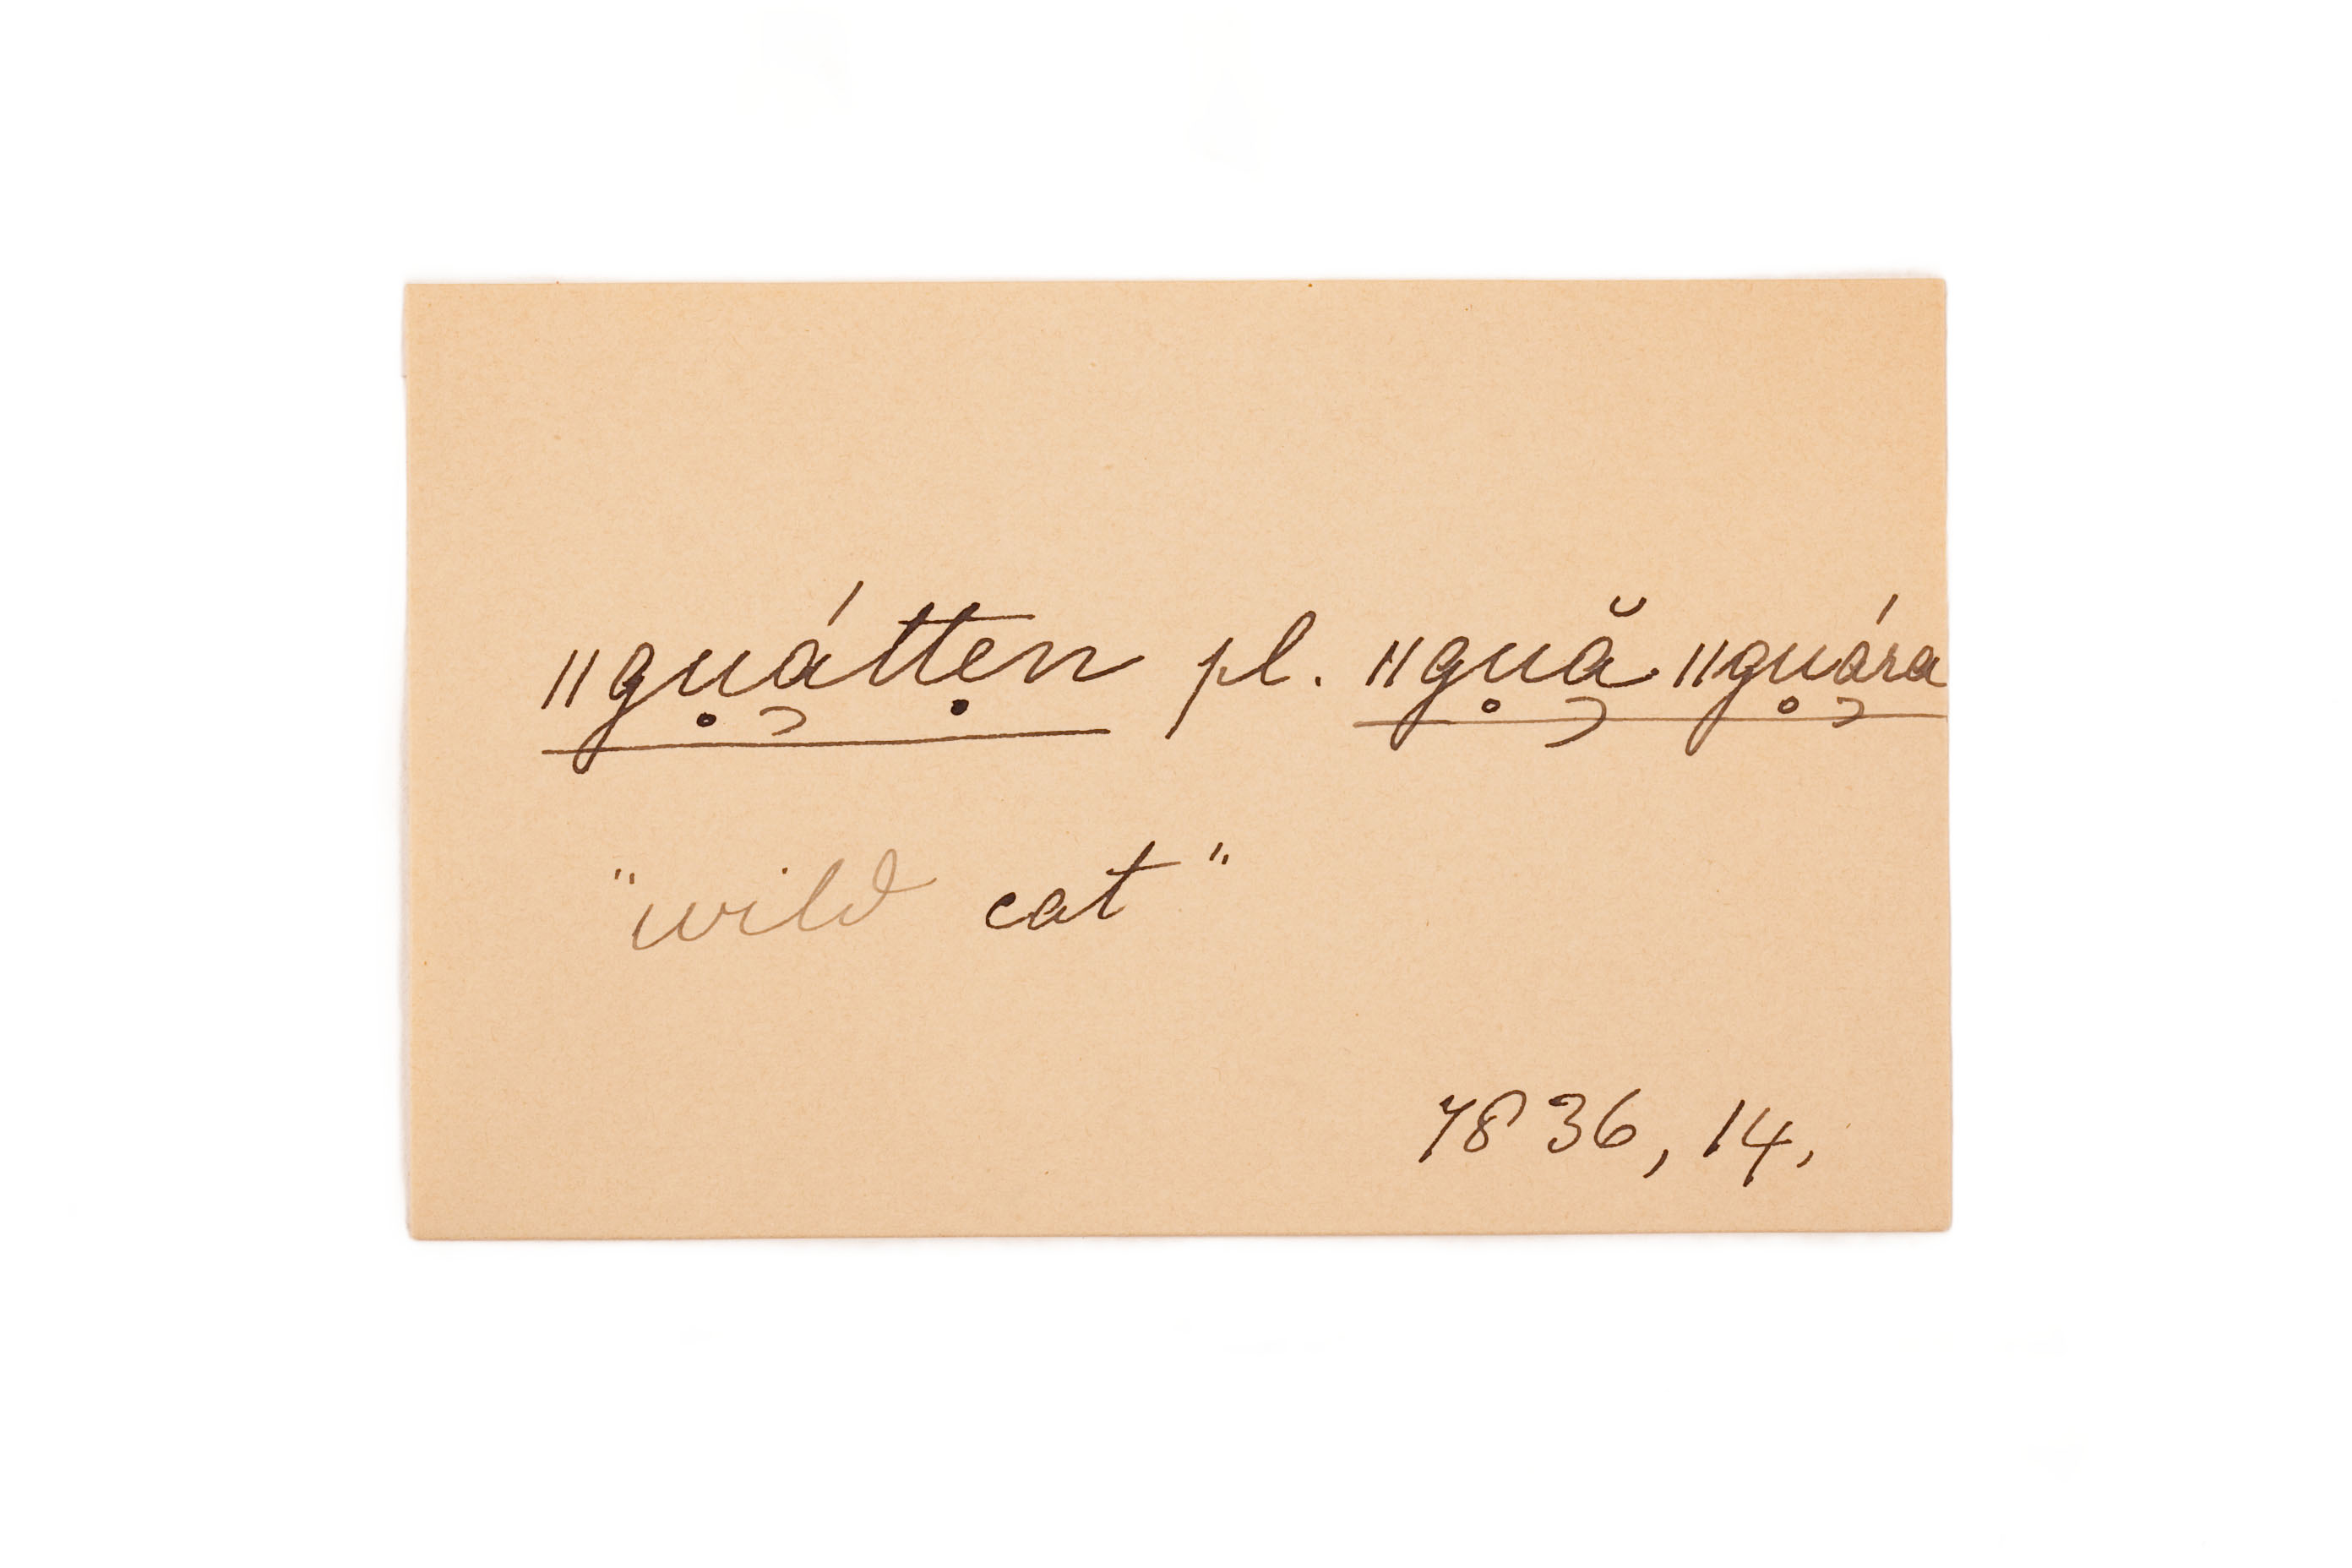 ǁgu̥á̹ttẹn pl. ǁgu̥ă̹ ǁgu̥á̹ra
"wild cat"
7836, 14.